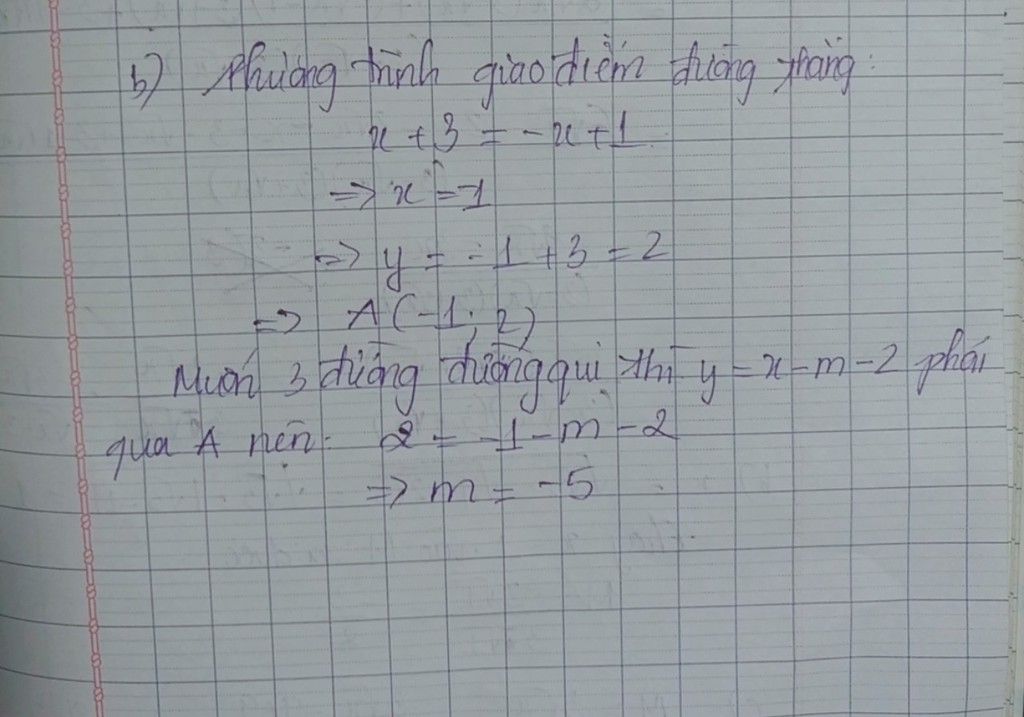 b) Phương trình giao điểm đường thẳng:
x + 3 = -x + 1
=> x = -1
=> y = -1 + 3 = 2
=> A (-1; 2)
Muốn 3 đường đường qui thì y = x - m - 2 phải
qua A nên: 2 = -1 - m - 2
=> m = -5